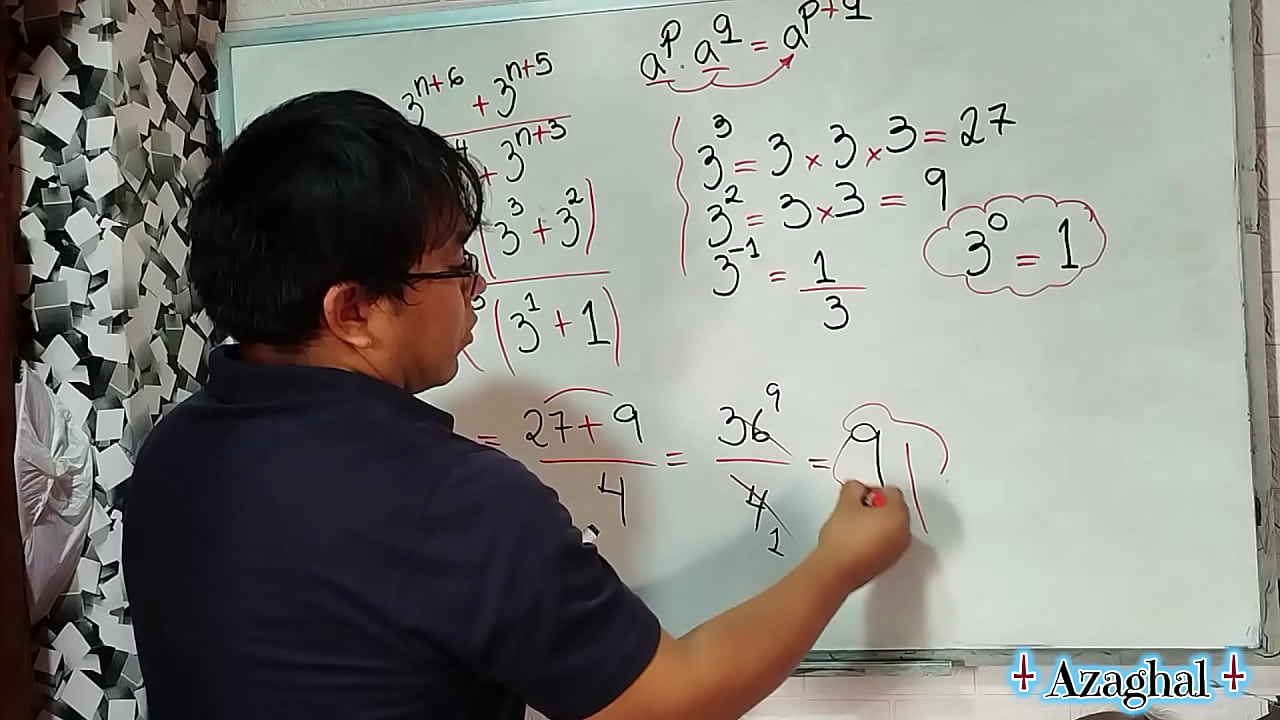 a^p · a^q = a^(p+q)
3^(n+6) + 3^(n+5)
4 + 3^(n+3)
(3^3 + 3^2)
(3^1 + 1)
3^3 = 3 × 3 × 3 = 27
3^2 = 3 × 3 = 9
3^-1 = 1/3
3^0 = 1
= (27 + 9)/4 = 36/4 = 9
9
1
Azaghal